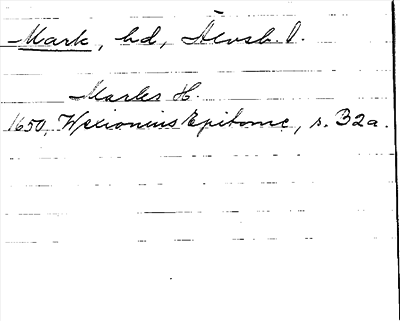 Mark, hd, Älvsb. l.
Marks H.
1650, Wexionius Epitome, s. B2a.